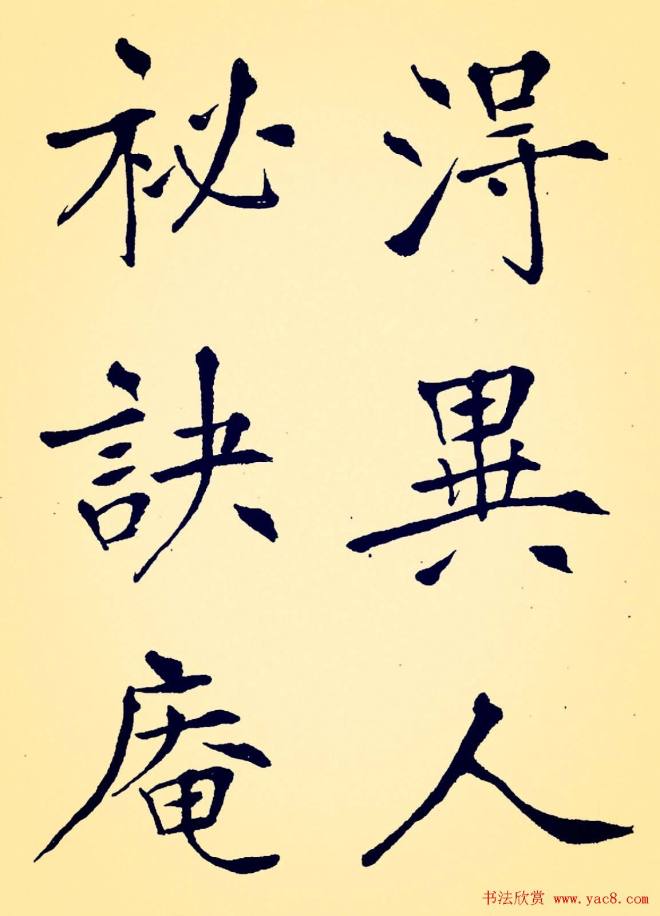 淂異人
祕訣庵
书法欣赏 www.yac8.com